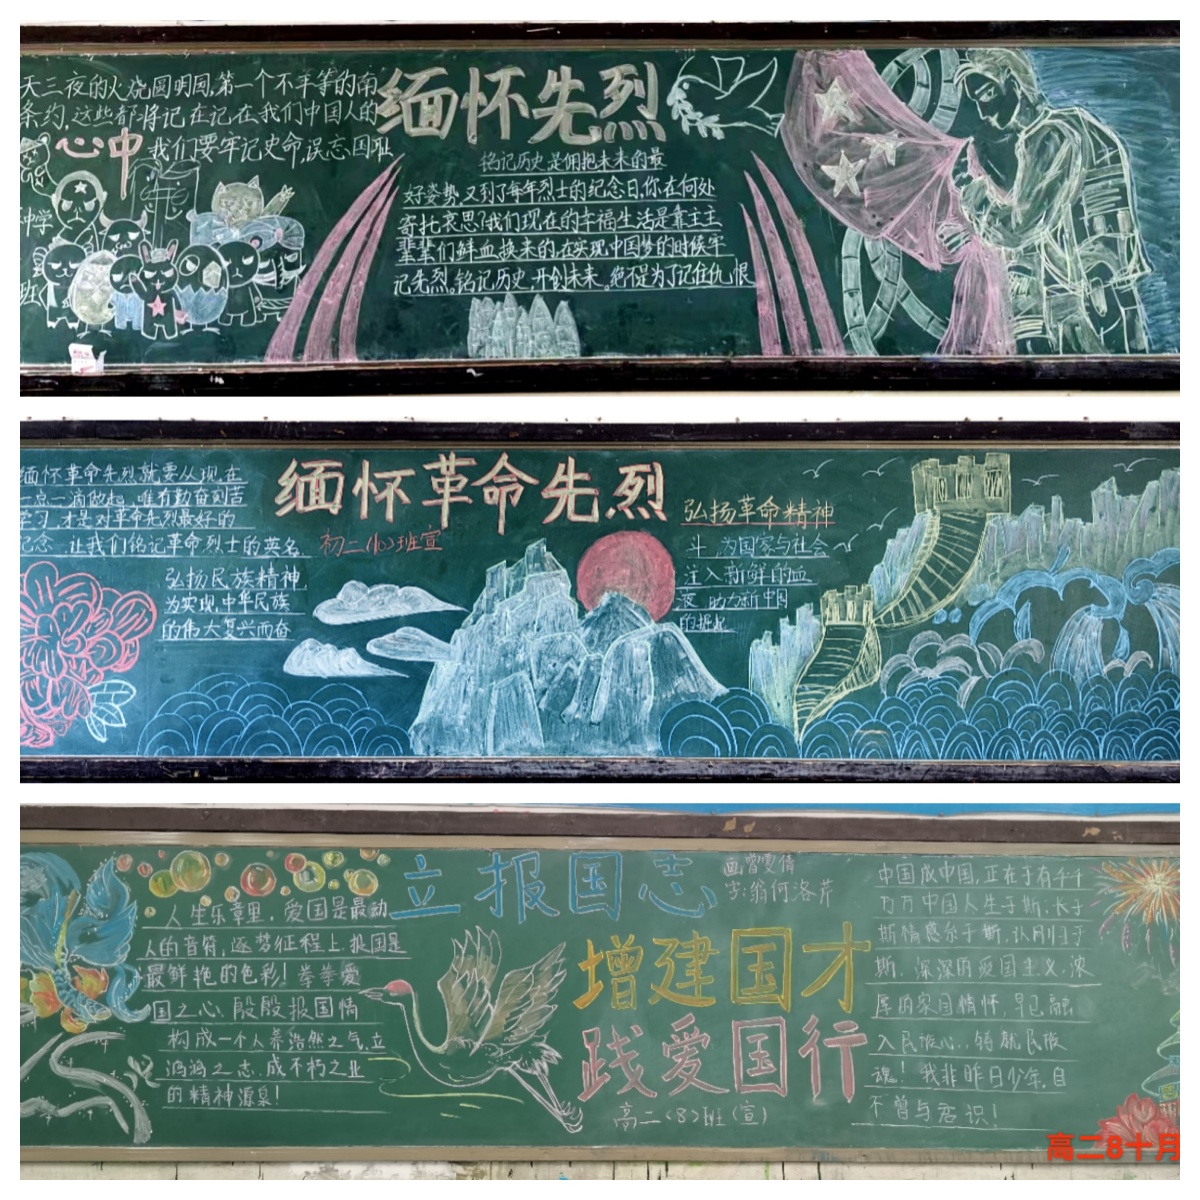 天三夜的火烧圆明园,第一个不平等的南
条约,这些都将记在记在我们中国人的
心中 我们要牢记史命,误忘国耻
中学
班
缅怀先烈
铭记历史是拥抱未来的最
好姿势又到了每年烈士的纪念日,你在何处
寄托哀思?我们现在的幸福生活是靠主主
辈辈们鲜血换来的,在实现中国梦的时候牢
记先烈,铭记历史,开创未来,绝促为了记住仇恨
缅怀革命先烈就要从现在
一点一滴做起,唯有勤奋刻苦
学习,才是对革命先烈最好的
纪念,让我们铭记革命烈士的英名,
弘扬民族精神,
为实现,中华民族
的伟大复兴而奋
缅怀革命先烈
初二(10)班宣
弘扬革命精神
斗,为国家与社会
注入新鲜的血
液,助力新中国
的崛起
人生乐章里,爱国是最动
人的音符,逐梦征程上,报国是
最鲜艳的色彩!拳拳爱
国之心,殷殷报国情
构成一个人养浩然之气,立
鸿鸿之志,成不朽之业
的精神源泉!
立报国志
画:曾雯倩
字:翁何洛芹
增建国才
践爱国行
高二(8)班(宣)
中国成中国,正在于有千千
万万中国人生于斯,长于
斯情感尔于斯,认同于
斯,深深的爱国主义,浓
厚的家国情怀,早已融
入民族心,铸就民族
魂!我非昨日少年,自
不曾与君识!
高二8十月